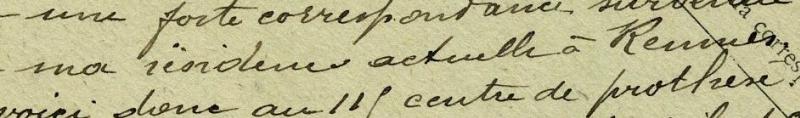 - une forte correspondance surveillée
- ma résidence actuelle à Rennes.
voici donc au 115 centre de prothèse
la corres